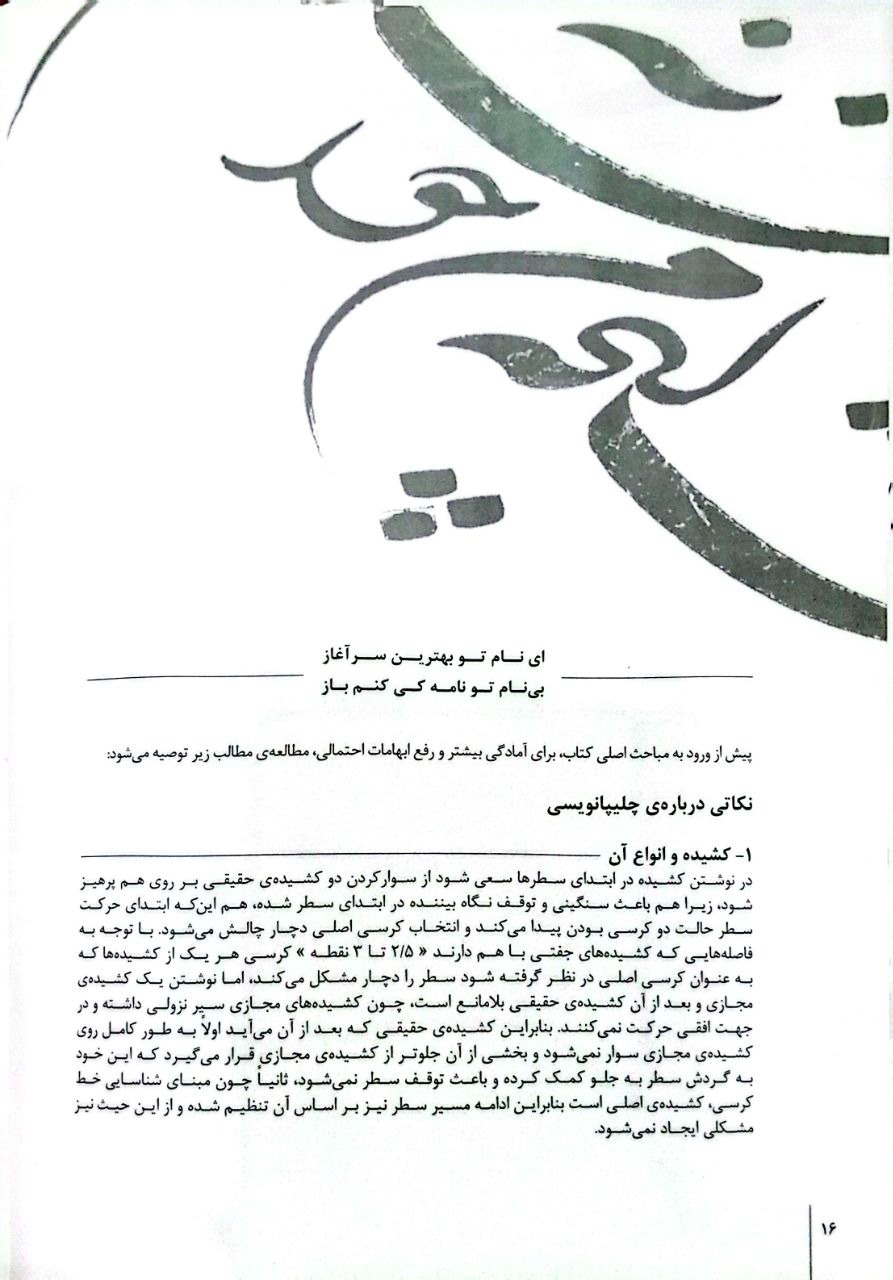 ای نام تو بهترین سرآغاز
بی‌نام تو نامه کی کنم باز
پیش از ورود به مباحث اصلی کتاب، برای آمادگی بیشتر و رفع ابهامات احتمالی، مطالعه‌ی مطالب زیر توصیه می‌شود:
نکاتی درباره‌ی چلیپانویسی
۱- کشیده و انواع آن
در نوشتن کشیده در ابتدای سطرها سعی شود از سوارکردن دو کشیده‌ی حقیقی بر روی هم پرهیز
شود، زیرا هم باعث سنگینی و توقف نگاه بیننده در ابتدای سطر شده، هم این‌که ابتدای حرکت
سطر حالت دو کرسی بودن پیدا می‌کند و انتخاب کرسی اصلی دچار چالش می‌شود. با توجه به
فاصله‌هایی که کشیده‌های جفتی با هم دارند « ۲/۵ تا ۳ نقطه » کرسی هر یک از کشیده‌ها که
به عنوان کرسی اصلی در نظر گرفته شود سطر را دچار مشکل می‌کند، اما نوشتن یک کشیده‌ی
مجازی و بعد از آن کشیده‌ی حقیقی بلامانع است، چون کشیده‌های مجازی سیر نزولی داشته و در
جهت افقی حرکت نمی‌کنند. بنابراین کشیده‌ی حقیقی که بعد از آن می‌آید اولاً به طور کامل روی
کشیده‌ی مجازی سوار نمی‌شود و بخشی از آن جلوتر از کشیده‌ی مجازی قرار می‌گیرد که این خود
به گردش سطر به جلو کمک کرده و باعث توقف سطر نمی‌شود، ثانیاً چون مبنای شناسایی خط
کرسی، کشیده‌ی اصلی است بنابراین ادامه مسیر سطر نیز بر اساس آن تنظیم شده و از این حیث نیز
مشکلی ایجاد نمی‌شود.
۱۶